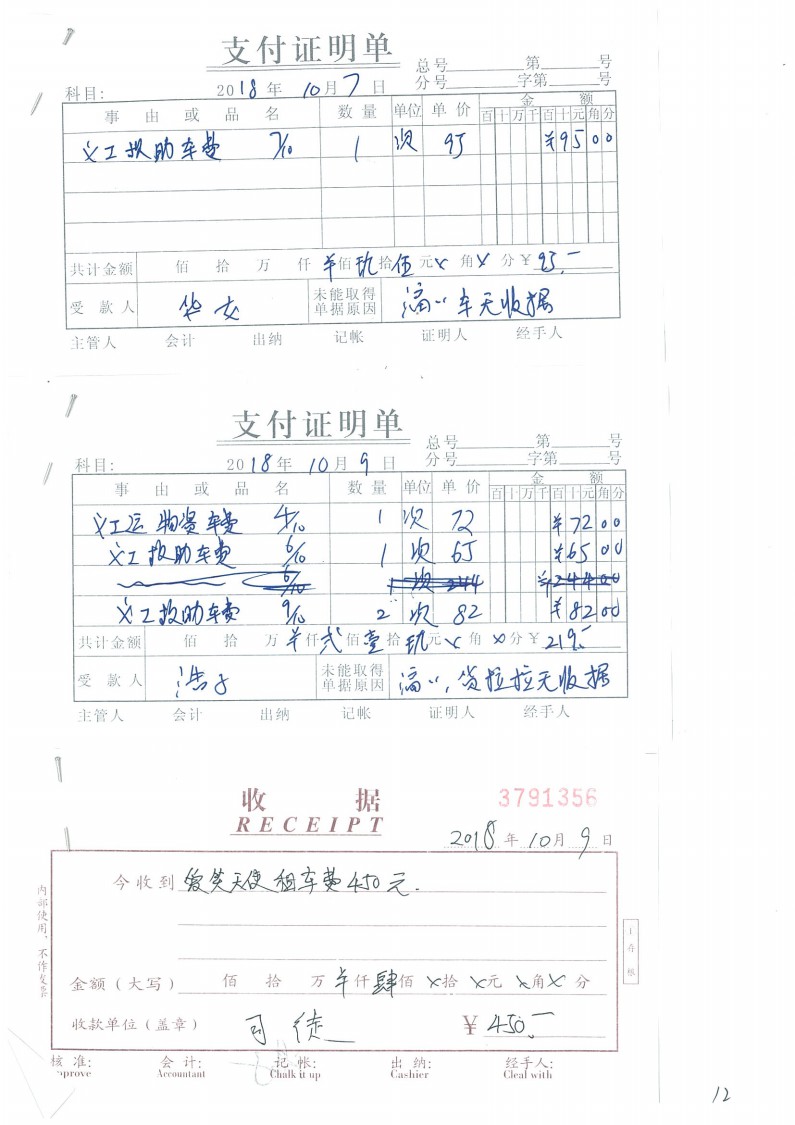 支付证明单
总号 第 号
分号 字第 号
科目: 2018年 10月7日
事由或品名 数量 单位 单价 金额
百十万千百十元角分
义工救助车费 7/10 1 次 95 ¥9500
共计金额 佰 拾 万 仟 ¥佰玖拾伍元×角×分 ¥95.-
受款人 华女 未能取得单据原因 滴滴车无收据
主管人 会计 出纳 记帐 证明人 经手人
支付证明单
总号 第 号
分号 字第 号
科目: 2018年 10月9日
事由或品名 数量 单位 单价 金额
百十万千百十元角分
义工运物资车费 4/10 1 次 72 ¥7200
义工救助车费 6/10 1 次 65 ¥6500
6/10 1 次 244 ¥24400
义工救助车费 9/10 2 次 82 ¥8200
共计金额 佰 拾 万¥仟贰佰壹拾玖元×角×分 ¥219.-
受款人 浩子 未能取得单据原因 滴滴,货拉拉无收据
主管人 会计 出纳 记帐 证明人 经手人
收据 3791356
RECEIPT
2018年10月9日
今收到 爱笑天使租车费450元.
金额(大写) 佰 拾 万¥仟肆佰×拾×元×角×分
收款单位(盖章) 司徒 ¥450.-
核准: 会计: 记帐: 出纳: 经手人:
pprove Accountant Chalk it up Cashier Cleal with
内部使用,不作发票
12